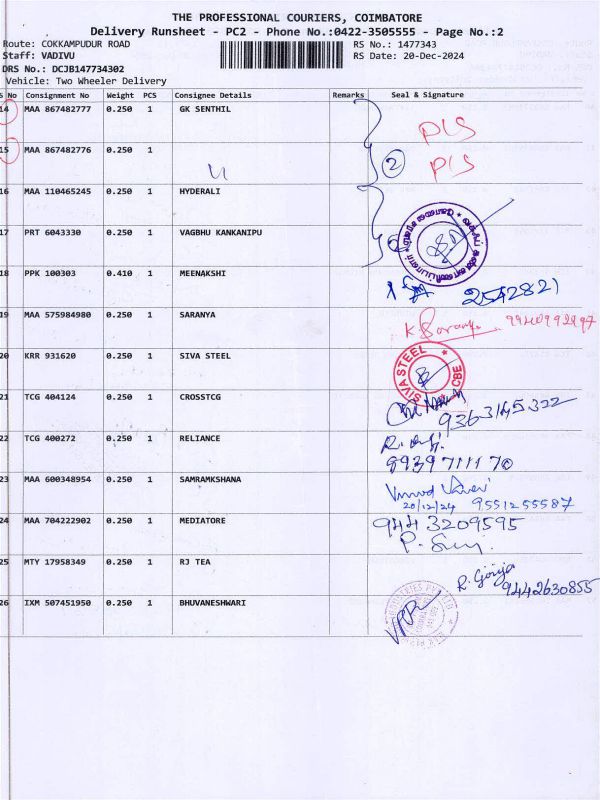 THE PROFESSIONAL COURIERS, COIMBATORE
Delivery Runsheet - PC2 - Phone No.:0422-3505555 - Page No.:2
Route: COKKAMPUDUR ROAD RS No.: 1477343
Staff: VADIVU RS Date: 20-Dec-2024
DRS No.: DCJB147734302
Vehicle: Two Wheeler Delivery
S No Consignment No Weight PCS Consignee Details Remarks Seal & Signature
14 MAA 867482777 0.250 1 GK SENTHIL
PLS
15 MAA 867482776 0.250 1
2 PLS
16 MAA 110465245 0.250 1 HYDERALI
17 PRT 6043330 0.250 1 VAGBHU KANKANIPU
18 PPK 100303 0.410 1 MEENAKSHI
2542821
19 MAA 575984980 0.250 1 SARANYA
K Saranya
20 KRR 931620 0.250 1 SIVA STEEL
SIVA STEEL CBE
21 TCG 404124 0.250 1 CROSSTCG
9363145322
22 TCG 400272 0.250 1 RELIANCE
8939711170
23 MAA 600348954 0.250 1 SAMRAMKSHANA
20/12/24 9551255587
24 MAA 704222902 0.250 1 MEDIATORE
9443209595
25 MTY 17958349 0.250 1 RJ TEA
R. Girija
9442630855
26 IXM 507451950 0.250 1 BHUVANESHWARI